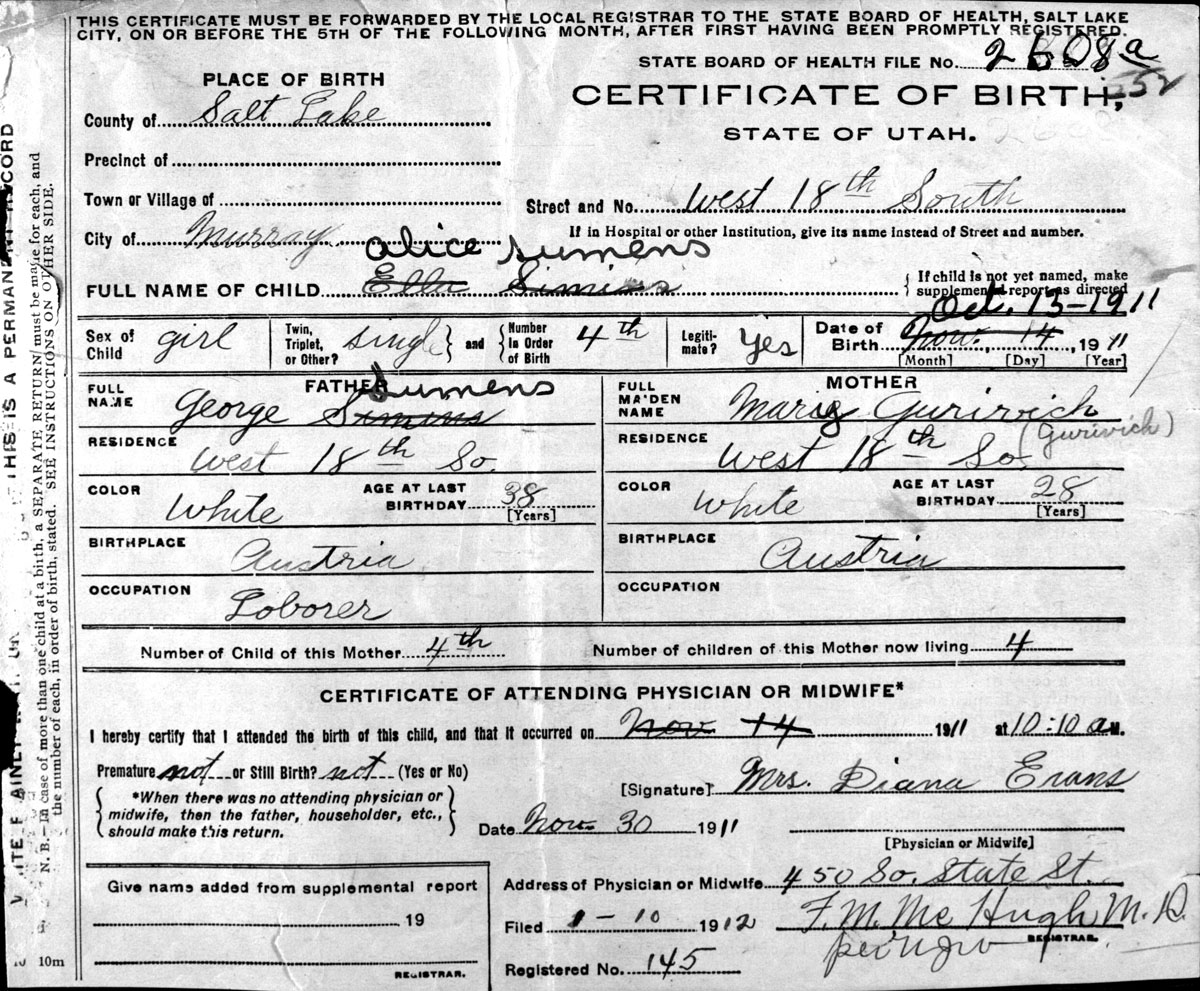 THIS CERTIFICATE MUST BE FORWARDED BY THE LOCAL REGISTRAR TO THE STATE BOARD OF HEALTH, SALT LAKE
CITY, ON OR BEFORE THE 5TH OF THE FOLLOWING MONTH, AFTER FIRST HAVING BEEN PROMPTLY REGISTERED.
STATE BOARD OF HEALTH FILE No. 2608 a
252
PLACE OF BIRTH
CERTIFICATE OF BIRTH,
STATE OF UTAH.
County of Salt Lake
Precinct of
Town or Village of
Street and No. West 18th South
City of Murray
If in Hospital or other Institution, give its name instead of Street and number.
Alice Sumens
FULL NAME OF CHILD Ella Simins
If child is not yet named, make
supplemental report as directed
Oct. 13-1911
Sex of Child girl
Twin, Triplet, or Other? single and Number in Order of Birth 4th
Legitimate? Yes
Date of Birth Nov. 14, 1911
[Month] [Day] [Year]
FATHER
Sumens
FULL NAME George Simins
RESIDENCE West 18th So.
COLOR White
AGE AT LAST BIRTHDAY 38
[Years]
BIRTHPLACE Austria
OCCUPATION Loborer
MOTHER
FULL MAIDEN NAME Mary Gurirvich
(Gurivich)
RESIDENCE West 18th So
COLOR White
AGE AT LAST BIRTHDAY 28
[Years]
BIRTHPLACE Austria
OCCUPATION
Number of Child of this Mother 4th
Number of children of this Mother now living 4
CERTIFICATE OF ATTENDING PHYSICIAN OR MIDWIFE*
I hereby certify that I attended the birth of this child, and that it occurred on Nov 14 1911 at 10:10 a M.
Premature not or Still Birth? not (Yes or No)
[Signature] Mrs. Diana Evans
*When there was no attending physician or
midwife, then the father, householder, etc.,
should make this return.
Date Nov. 30 1911
[Physician or Midwife]
Give name added from supplemental report
19
REGISTRAR.
Address of Physician or Midwife 450 So. State St.
Filed 1-10 1912
F. M. McHugh M. D.
REGISTRAR.
Registered No. 145
THIS IS A PERMANENT RECORD
N. B.—In case of more than one child at a birth, a SEPARATE RETURN must be made for each, and
the number of each, in order of birth, stated. SEE INSTRUCTIONS ON OTHER SIDE.
10m